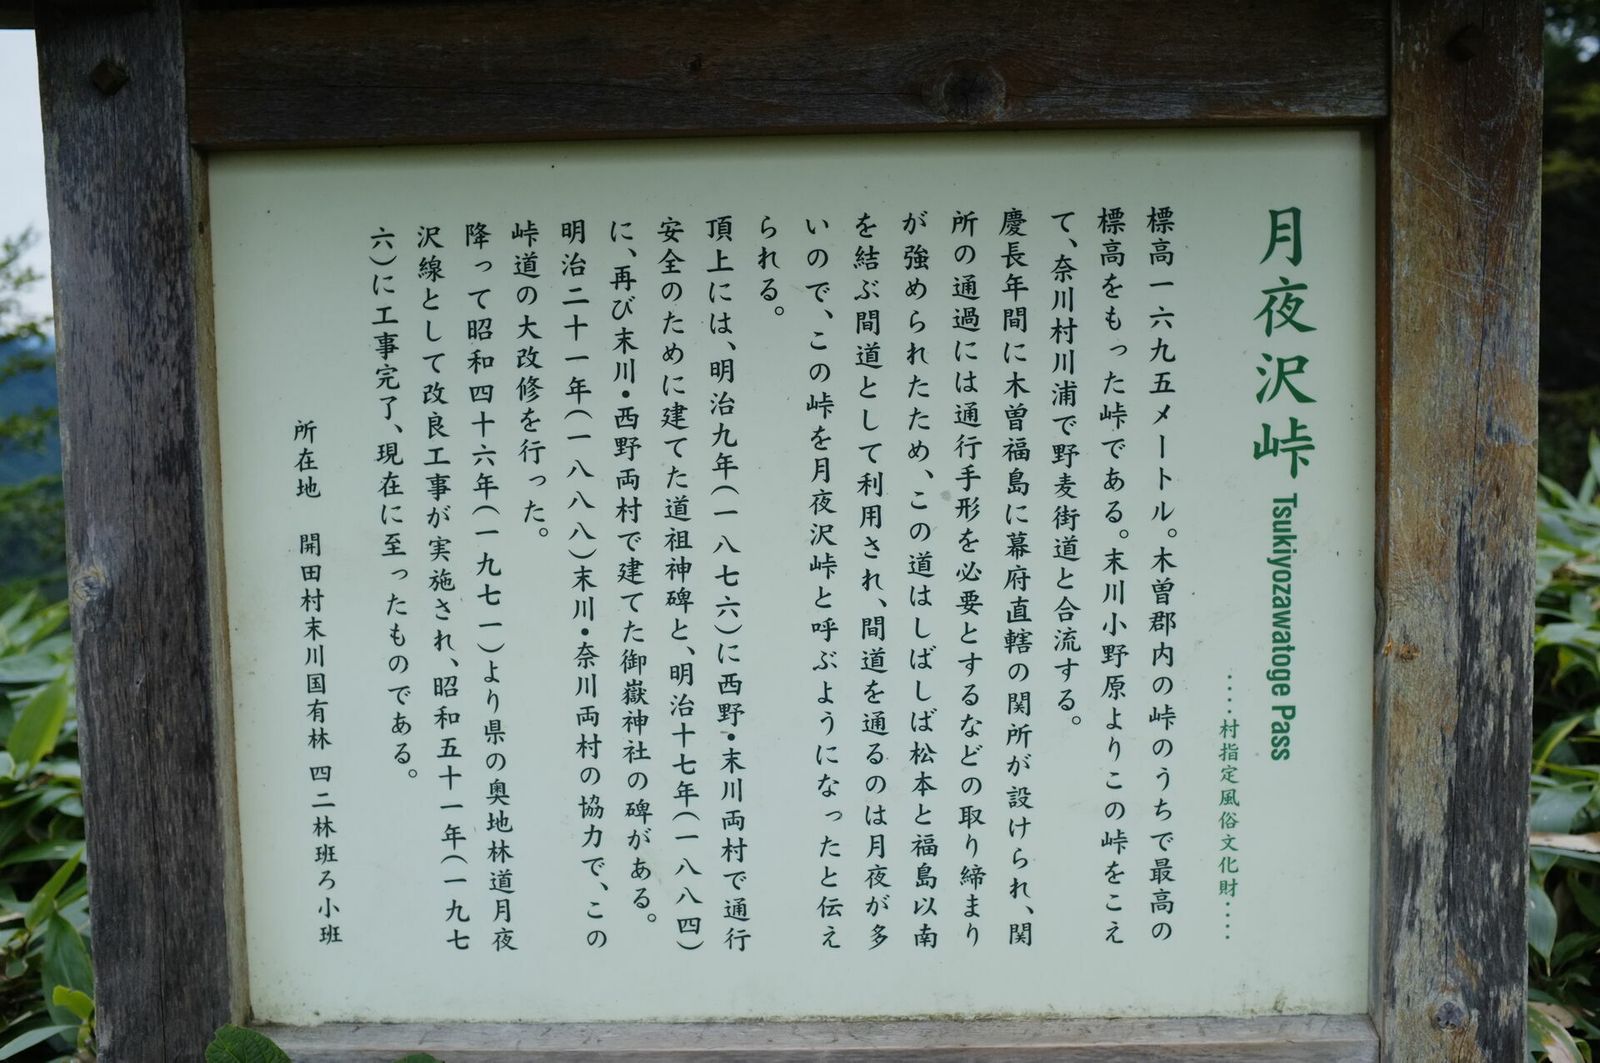 月夜沢峠 Tsukiyozawatoge Pass
‥‥村指定風俗文化財‥‥
標高一六九五メートル。木曽郡内の峠のうちで最高の
標高をもった峠である。末川小野原よりこの峠をこえ
て、奈川村川浦で野麦街道と合流する。
慶長年間に木曽福島に幕府直轄の関所が設けられ、関
所の通過には通行手形を必要とするなどの取り締まり
が強められたため、この道はしばしば松本と福島以南
を結ぶ間道として利用され、間道を通るのは月夜が多
いので、この峠を月夜沢峠と呼ぶようになったと伝え
られる。
頂上には、明治九年(一八七六)に西野・末川両村で通行
安全のために建てた道祖神碑と、明治十七年(一八八四)
に、再び末川・西野両村で建てた御嶽神社の碑がある。
明治二十一年(一八八八)末川・奈川両村の協力で、この
峠道の大改修を行った。
降って昭和四十六年(一九七一)より県の奥地林道月夜
沢線として改良工事が実施され、昭和五十一年(一九七
六)に工事完了、現在に至ったものである。
所在地 開田村末川国有林 四二林班ろ小班